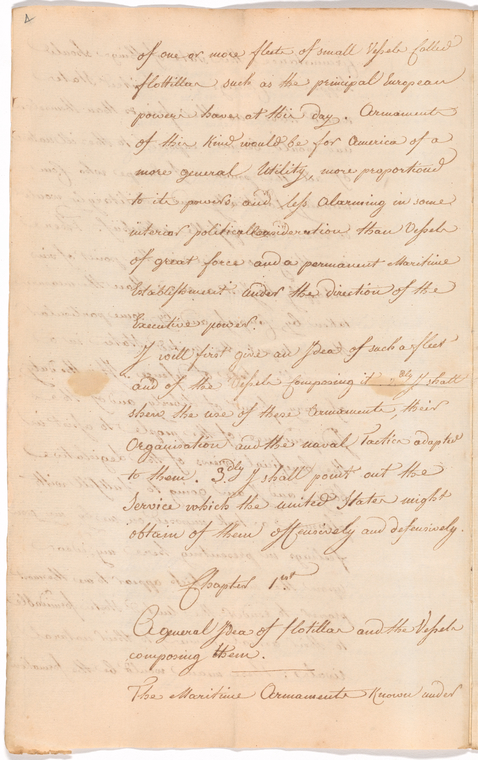 4
of one or more fleets of small Vessels Called
flotillas such as the principal European
powers have at this day. Armaments
of this Kind would be for America of a
more general Utility, more proportioned
to its powers and less Alarming in some
interior political Consideration than Vessels
of great force and a permanent Maritime
Establishment under the direction of the
Executive power.
I will first give an Idea of such a fleet
and of the Vessels Composing it 2ly I shall
shew the use of these Armaments their
Organisation and the naval Tactics adapted
to them. 3dly I shall point out the
Service which the united States might
obtain of them offensively and defensively.
Chapter 1st
A general Idea of flotillas and the Vessels
composing them.
The Maritime Armaments Known under